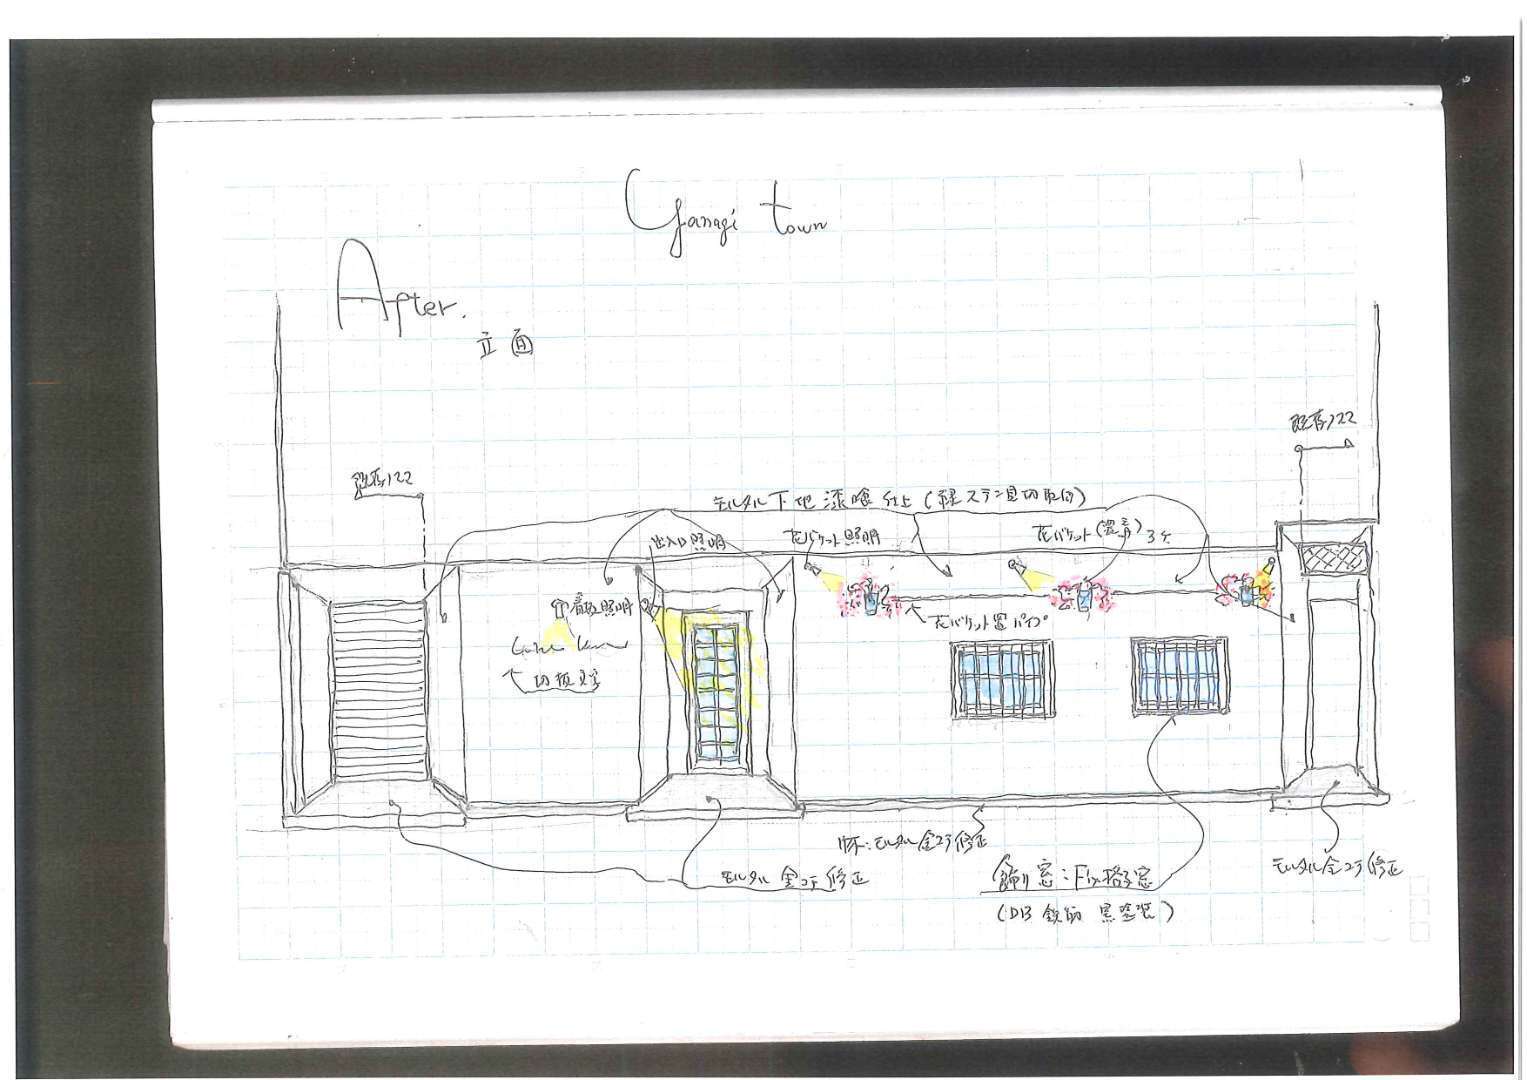 Yanagi town
After.
立面
既存122
既存122
モルタル下地 漆喰仕上(縁ステン見切取付)
出入口照明
花バケット照明
花バケット(置き)3ケ
看板照明
花バケット置パイプ
切板文字
巾木:モルタル金コテ修正
モルタル金コテ修正
飾り窓:Fix格子窓
(D13 鉄筋 黒塗装)
モルタル金コテ修正